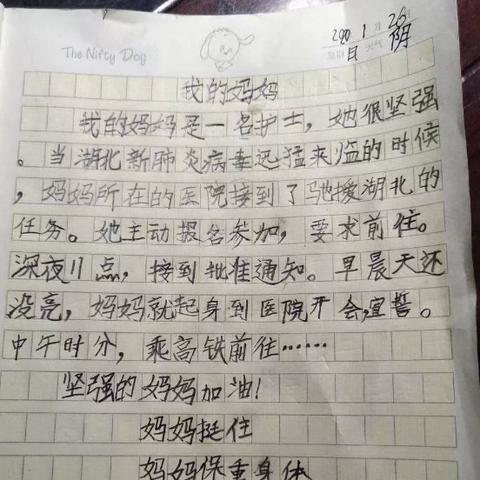 The Nifty Dog
2020 1月26日
星期日 天气 阴
我的妈妈
我的妈妈是一名护士，她很坚强
。当湖北新肺炎病毒迅猛来临的时候
，妈妈所在的医院接到了驰援湖北的
任务。她主动报名参加，要求前往。
深夜11点，接到批准通知。早晨天还
没亮，妈妈就起身到医院开会,宣誓。
中午时分，乘高铁前往……
坚强的妈妈加油！
妈妈挺住
妈妈保重身体